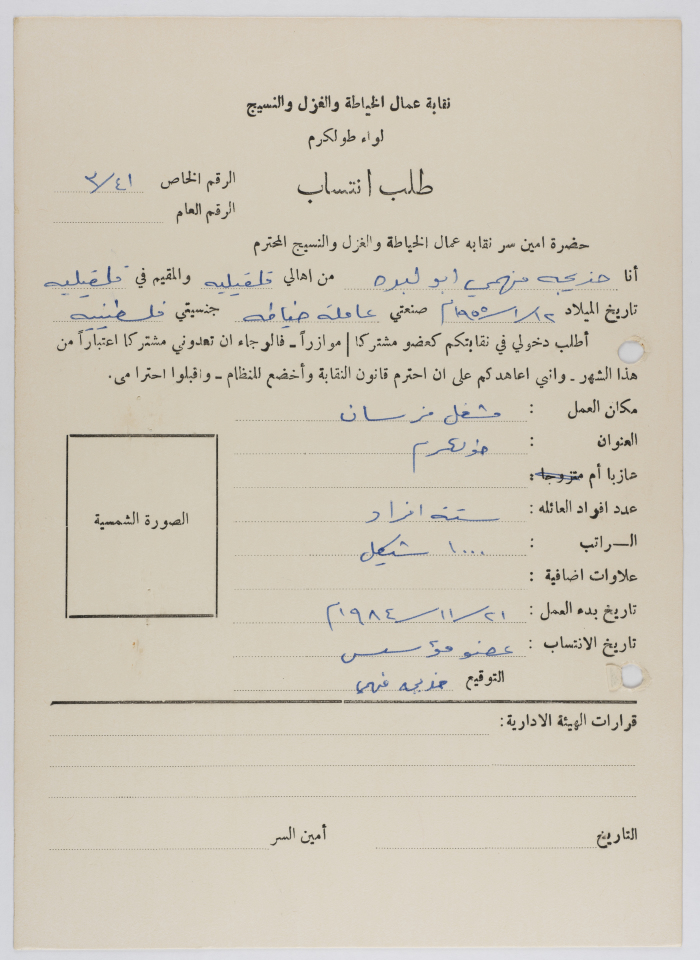 نقابة عمال الخياطة والغزل والنسيج
لواء طولكرم
طلب انتساب
الرقم الخاص ٣/٤١
الرقم العام
حضرة امين سر نقابه عمال الخياطة والغزل والنسيج المحترم
أنا خديجه فهمي ابو لبده من اهالي قلقيليه والمقيم في قلقيليه
تاريخ الميلاد ١٩٥٥/١/١٢م صنعتي عاملة خياطه جنسيتي فلسطينيه
أطلب دخولي في نقابتكم كعضو مشتركا | موازراً ـ فالرجاء ان تعدوني مشتركا اعتباراً من
هذا الشهر ـ واني اعاهدكم على ان احترم قانون النقابة وأخضع للنظام ـ واقبلوا احترامى.
مكان العمل : مشغل فرسان
العنوان : طولكرم
عازبا أم متزوجا :
عدد افراد العائله : ستة افراد
الـــراتب : ١٠٠٠ شيكل
علاوات اضافية :
تاريخ بدء العمل : ١٩٨٤/١١/٢١م
تاريخ الانتساب : عضو مؤسس
التوقيع خديجه فهمي
الصورة الشمسية
قرارات الهيئة الادارية :
التاريخ
أمين السر